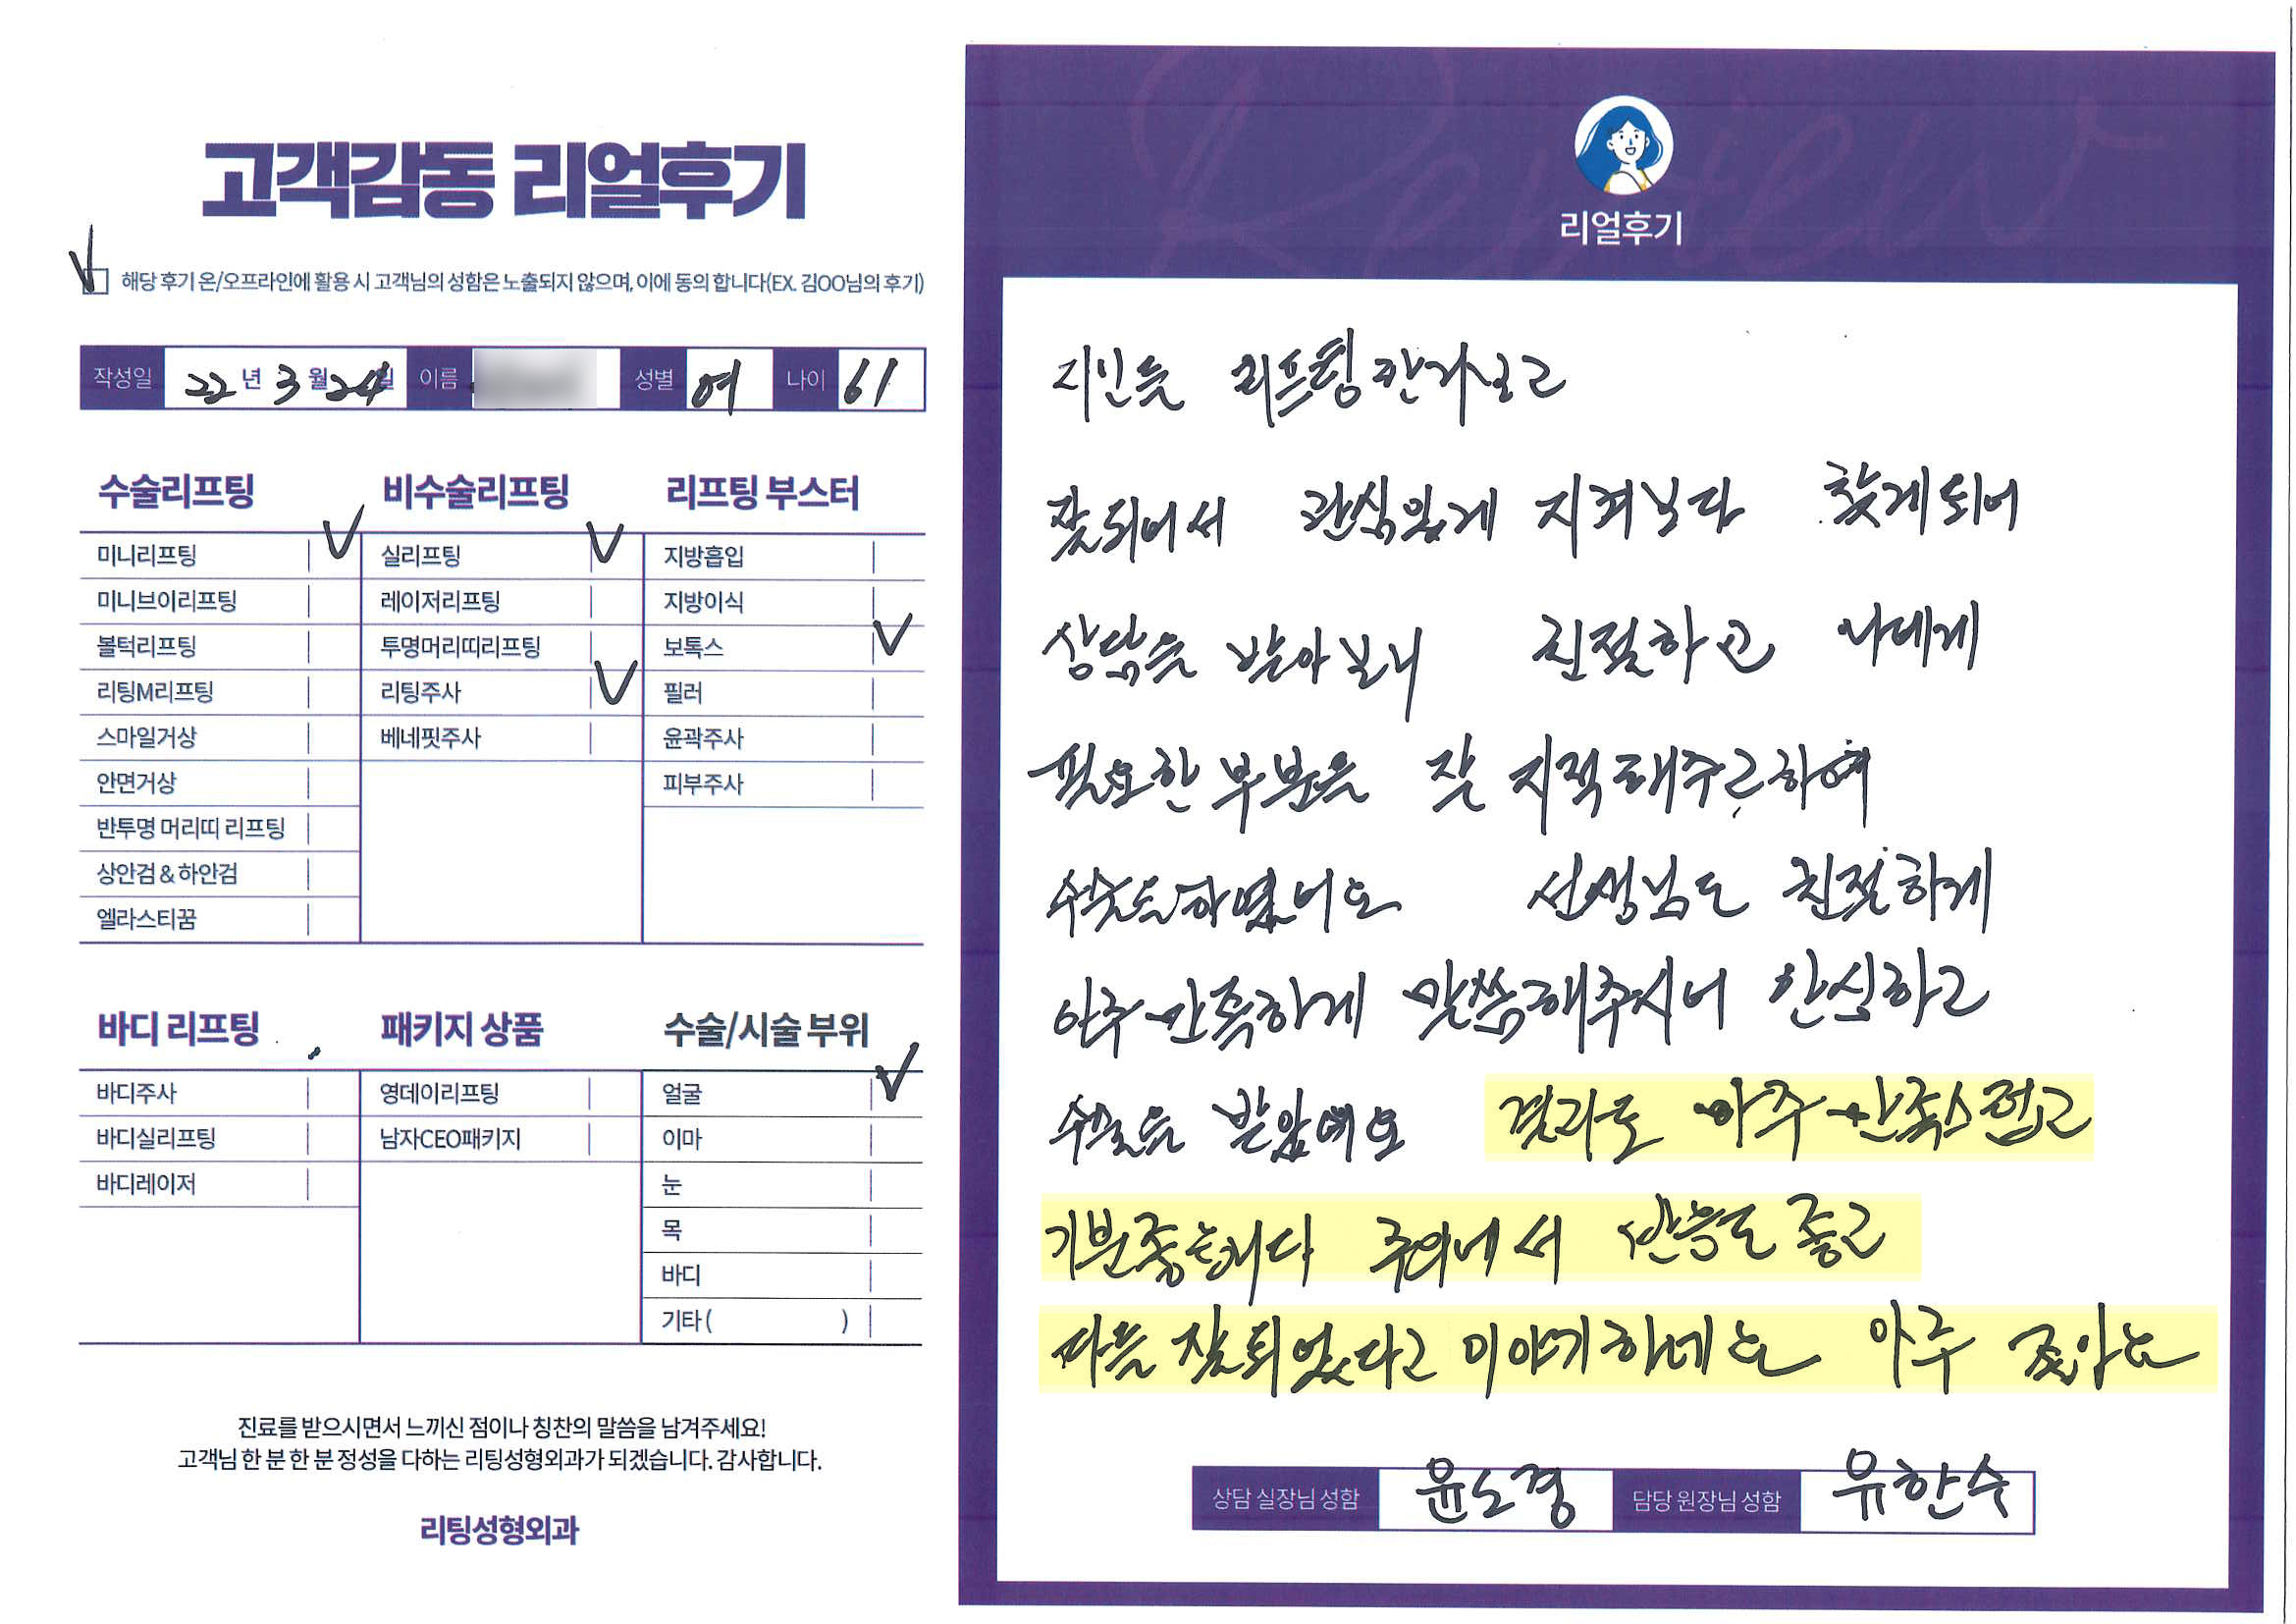 고객감동 리얼후기
해당 후기 온/오프라인에 활용 시 고객님의 성함은 노출되지 않으며, 이에 동의 합니다(EX. 김OO님의 후기)
작성일 22년 3월 24일 이름 성별 여 나이 61
수술리프팅
미니리프팅
미니브이리프팅
볼턱리프팅
리팅M리프팅
스마일거상
안면거상
반투명 머리띠 리프팅
상안검 & 하안검
엘라스티꿈
비수술리프팅
실리프팅
레이저리프팅
투명머리띠리프팅
리팅주사
베네핏주사
리프팅 부스터
지방흡입
지방이식
보톡스
필러
윤곽주사
피부주사
바디 리프팅
바디주사
바디실리프팅
바디레이저
패키지 상품
영데이리프팅
남자CEO패키지
수술/시술 부위
얼굴
이마
눈
목
바디
기타 ( )
진료를 받으시면서 느끼신 점이나 칭찬의 말씀을 남겨주세요!
고객님 한 분 한 분 정성을 다하는 리팅성형외과가 되겠습니다. 감사합니다.
리팅성형외과
Review
리얼후기
지인들 리프팅
잘되어서 관심있게 지켜보다 찾게되어
상담을 받아보니 친절하고 나에게
필요한 부분을 잘 지적해주고하여
선생님도 친절하게
아주 만족하게 말씀해주시니 안심하고
수술을 받았어요 결과도 아주 만족스럽고
기분좋습니다 주위에서 반응도 좋고
다들 잘되었다고 이야기하네요 아주 좋아요
상담 실장님 성함 윤도경 담당 원장님 성함 유한수